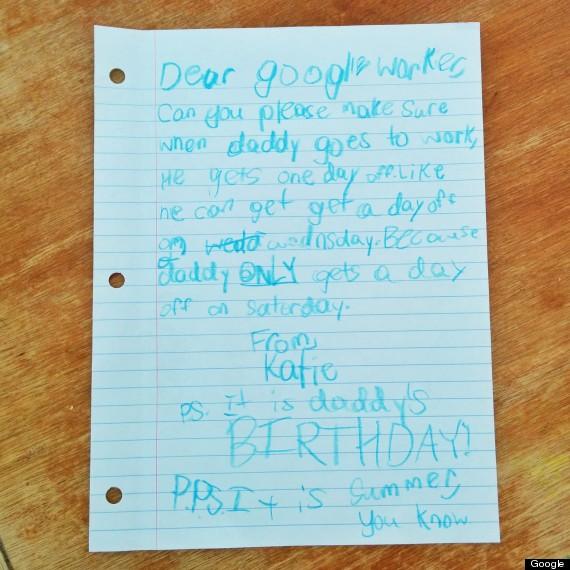 Dear google worker,
Can you please make sure
when daddy goes to work,
He gets one day off. Like
he can get get a day off
on wednsday. Because
daddy ONLY gets a day
off on Saturday.
From,
Katie
ps. It is daddy's
BIRTHDAY!
P.P.S. It is summer,
you know
Google